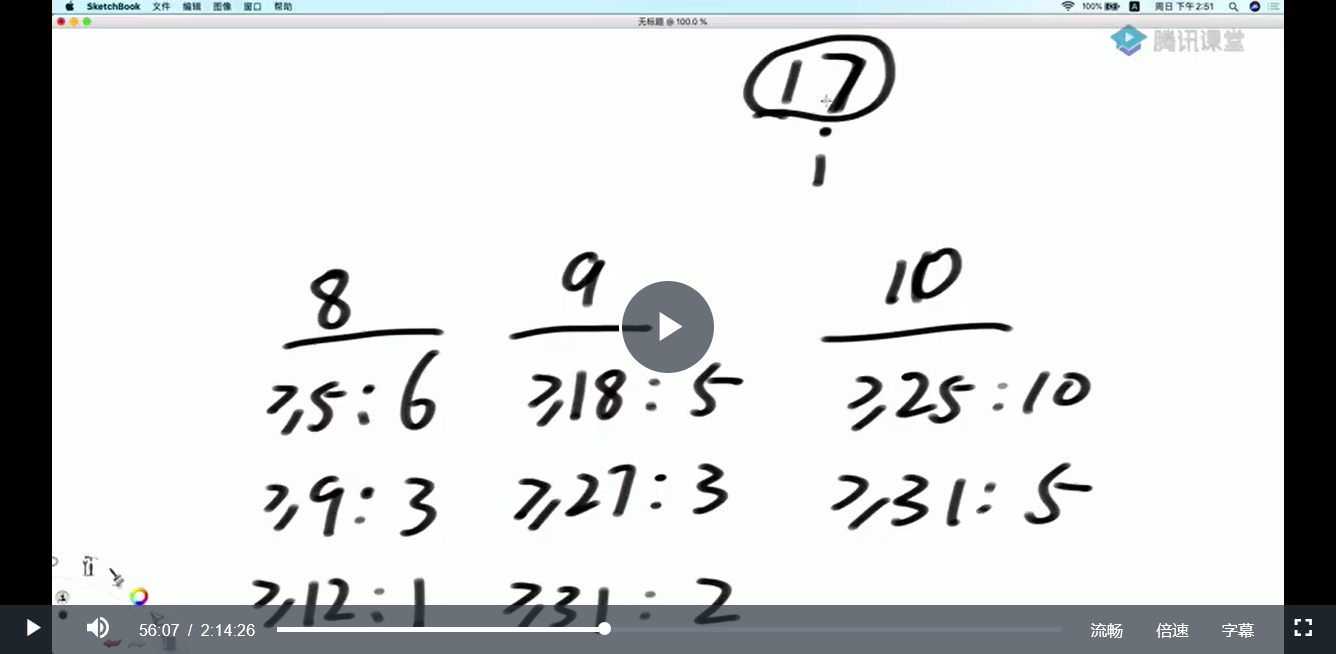 SketchBook 文件 编辑 图像 窗口 帮助 100% 周日 下午2:51
无标题 @ 100.0 %
腾讯课堂
17
i
8 9 10
≥5:6 ≥18:5 ≥25:10
≥9:3 ≥27:3 ≥31:5
≥12:1 ≥31:2
56:07 / 2:14:26 流畅 倍速 字幕